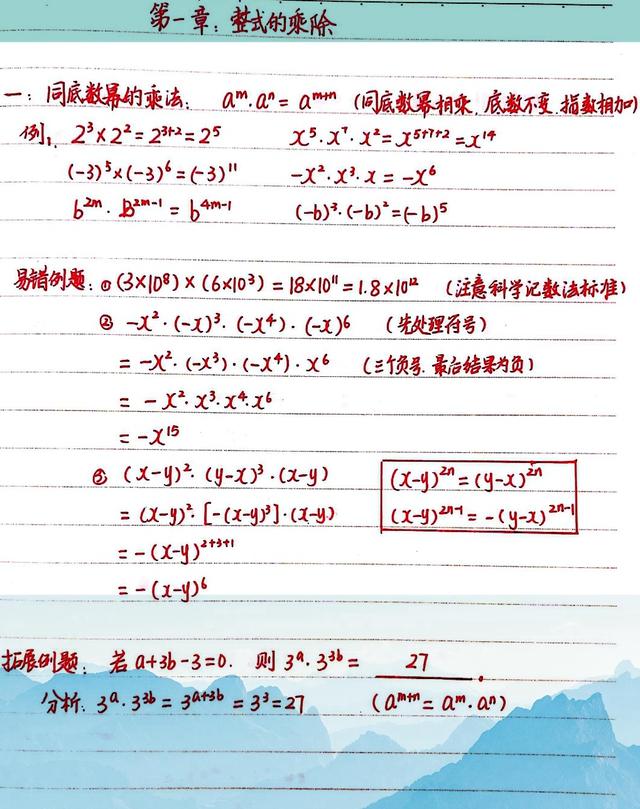 第一章：整式的乘除
一：同底数幂的乘法：aᵐ·aⁿ=aᵐ⁺ⁿ (同底数幂相乘,底数不变,指数相加)
例1, 2³×2²=2³⁺²=2⁵ x⁵·x⁷·x²=x⁵⁺⁷⁺²=x¹⁴
(-3)⁵×(-3)⁶=(-3)¹¹ -x²·x³·x=-x⁶
b²ᵐ·b²ᵐ⁻¹=b⁴ᵐ⁻¹ (-b)³·(-b)²=(-b)⁵
易错例题：① (3×10⁸)×(6×10³)=18×10¹¹=1.8×10¹² (注意科学记数法标准)
② -x²·(-x)³·(-x⁴)·(-x)⁶ (先处理符号)
= -x²·(-x³)·(-x⁴)·x⁶ (三个负号,最后结果为负)
= -x²·x³·x⁴·x⁶
= -x¹⁵
③ (x-y)²·(y-x)³·(x-y) (x-y)²ⁿ=(y-x)²ⁿ
= (x-y)²·[-(x-y)³]·(x-y) (x-y)²ⁿ⁻¹=-(y-x)²ⁿ⁻¹
= -(x-y)²⁺³⁺¹
= -(x-y)⁶
拓展例题：若a+3b-3=0. 则3ᵃ·3³ᵇ= 27 .
分析：3ᵃ·3³ᵇ=3ᵃ⁺³ᵇ=3³=27 (aᵐ⁺ⁿ=aᵐ·aⁿ)